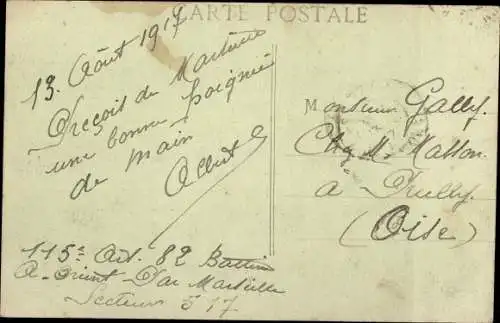 CARTE POSTALE
13. Août 1917
Reçois de Martini
une bonne poignée
de main
Albert
Monsieur Gally.
Chez M. Masson
a
(Oise)
115e Art. 82 Batterie
A. Orient Par Marseille
Secteur 517